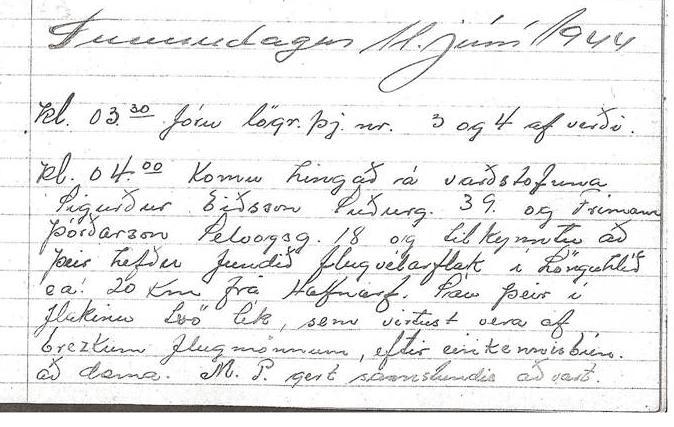 Sunnudagur 11. júní 1944
Kl. 03.30 fóru lögr.þj. nr. 3 og 4 af verði.
Kl. 04.00 Komu hingað á varðstofuna
Sigurður Eiðsson Suðurg. 39. og Frímann
Þórðarson Selvogsg. 18 og tilkynntu að
þeir hefðu fundið flugvélarflak í Lönguhlíð
ca. 20 Km frá Hafnarf. Sáu þeir í
flakinu tvö lík, sem virtust vera af
brezkum flugmönnum, eftir einkennisbún.
að dæma. M. P. gert samstundis aðvart.